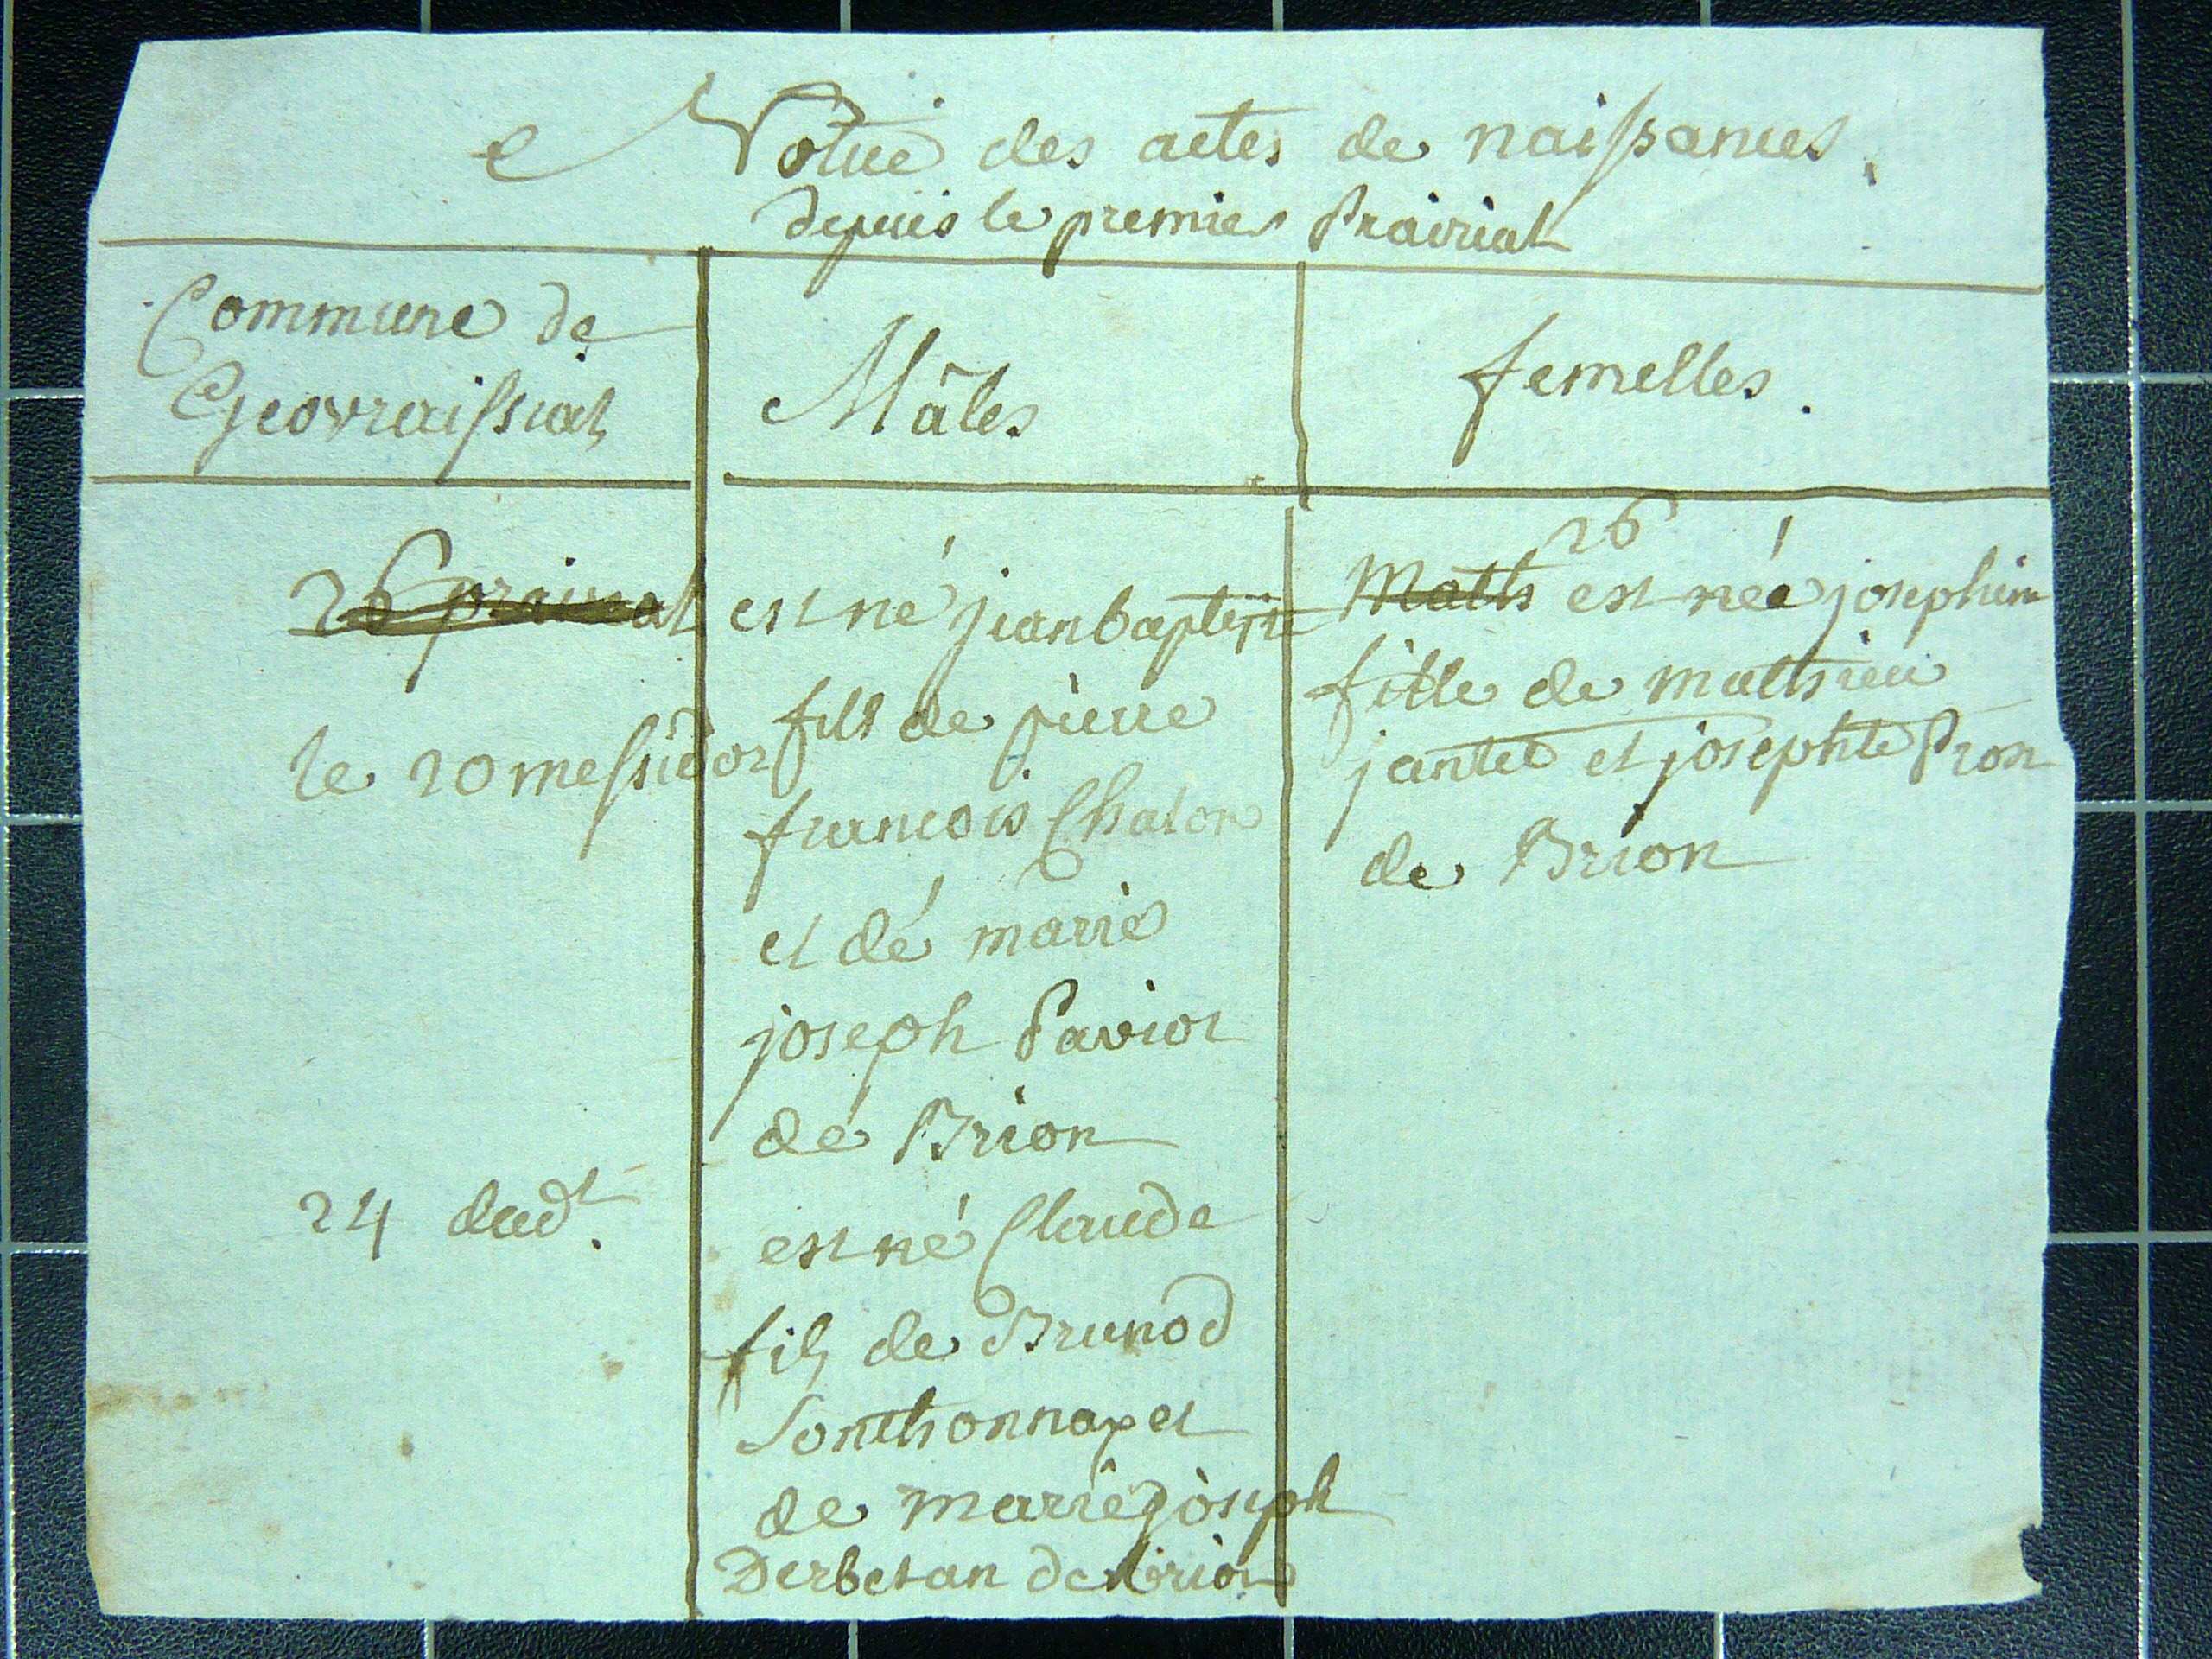 Notice des actes de naissances.
depuis le premier Prairial
Commune de
Geovraissiat
Mâles
femelles.
26 prairial
le 20 messidor
24 dudt.
est né jean baptiste
fils de pierre
francois Chaton
et dé marie
joseph Pavior
de Brion
est né Claude
fils de Brunod
Sonthonnax et
de marie joseph
Derbetan de brion
26
Math est née josephine
fille de mathieu
jantet et josephte Pron
de Brion